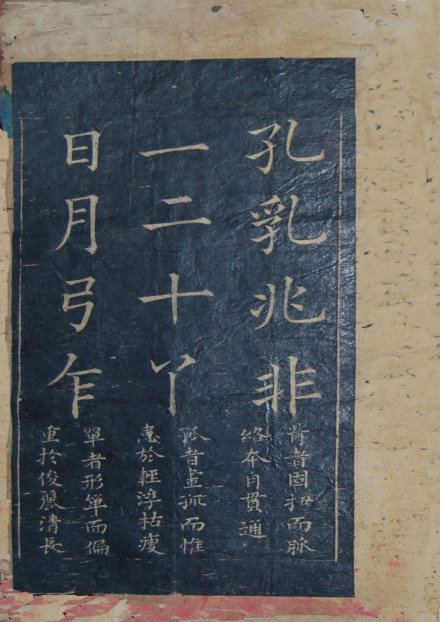 孔乳兆非
背者固而脈
絡本自貫通
一二十丫
孤者畫孤而惟
患於輕浮枯瘦
日月弓乍
單者形單而偏
重於俊麗清長